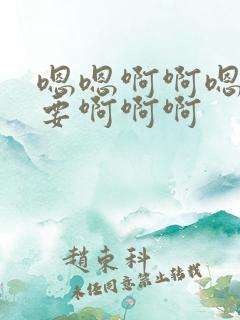 嗯嗯啊啊嗯
要啊啊啊
趙束科
未任同意禁止转载